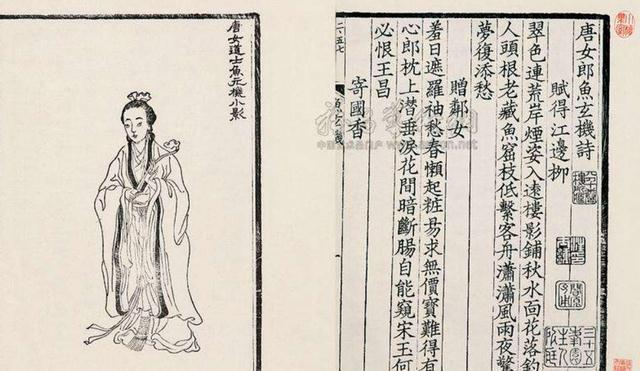 唐女郎魚玄機詩
賦得江邊柳
翠色連荒岸煙姿入遠樓影鋪秋水面花落釣
人頭根老藏魚窟枝低繫客舟瀟瀟風雨夜驚
夢復添愁
贈鄰女
羞日遮羅袖愁春懶起粧易求無價寶難得有
心郎枕上潛垂淚花間暗斷腸自能窺宋玉何
必恨王昌
寄國香
唐女道士魚元機小影